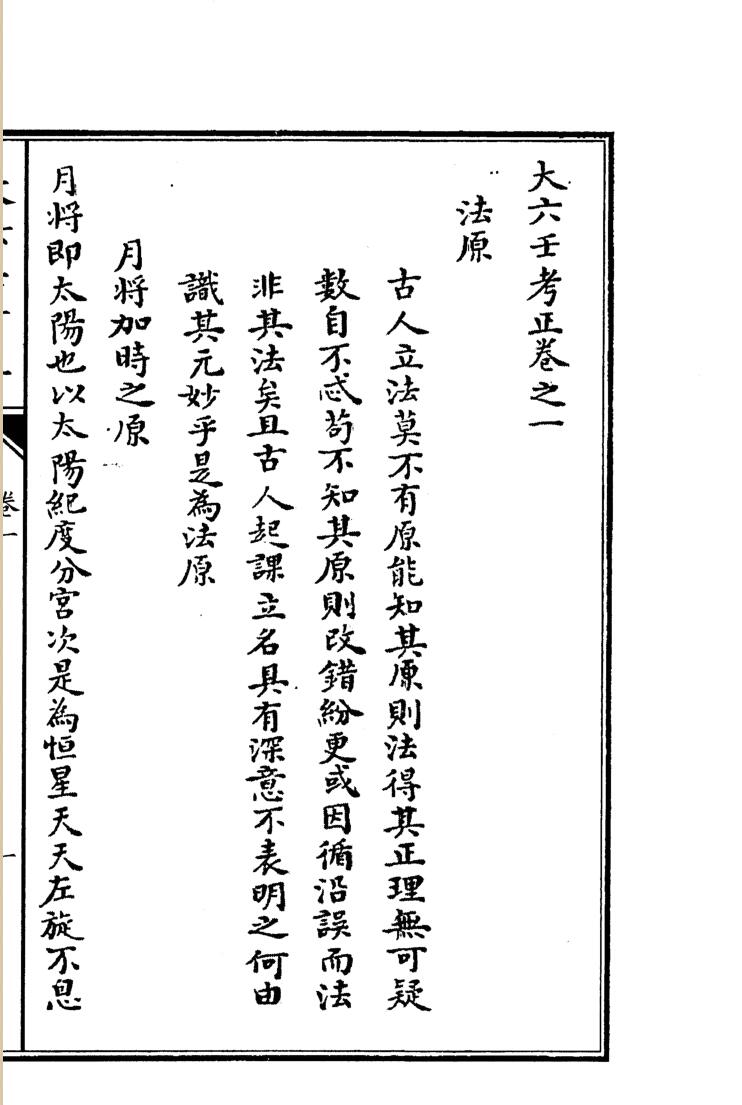 大六壬考正卷之一
法原
古人立法莫不有原能知其原則法得其正理無可疑
數自不忒苟不知其原則改錯紛更或因循沿誤而法
非其法矣且古人起課立名具有深意不表明之何由
識其元妙乎是為法原
月将加時之原
月将即太陽也以太陽紀度分宮次是為恒星天天左旋不息
卷一
一